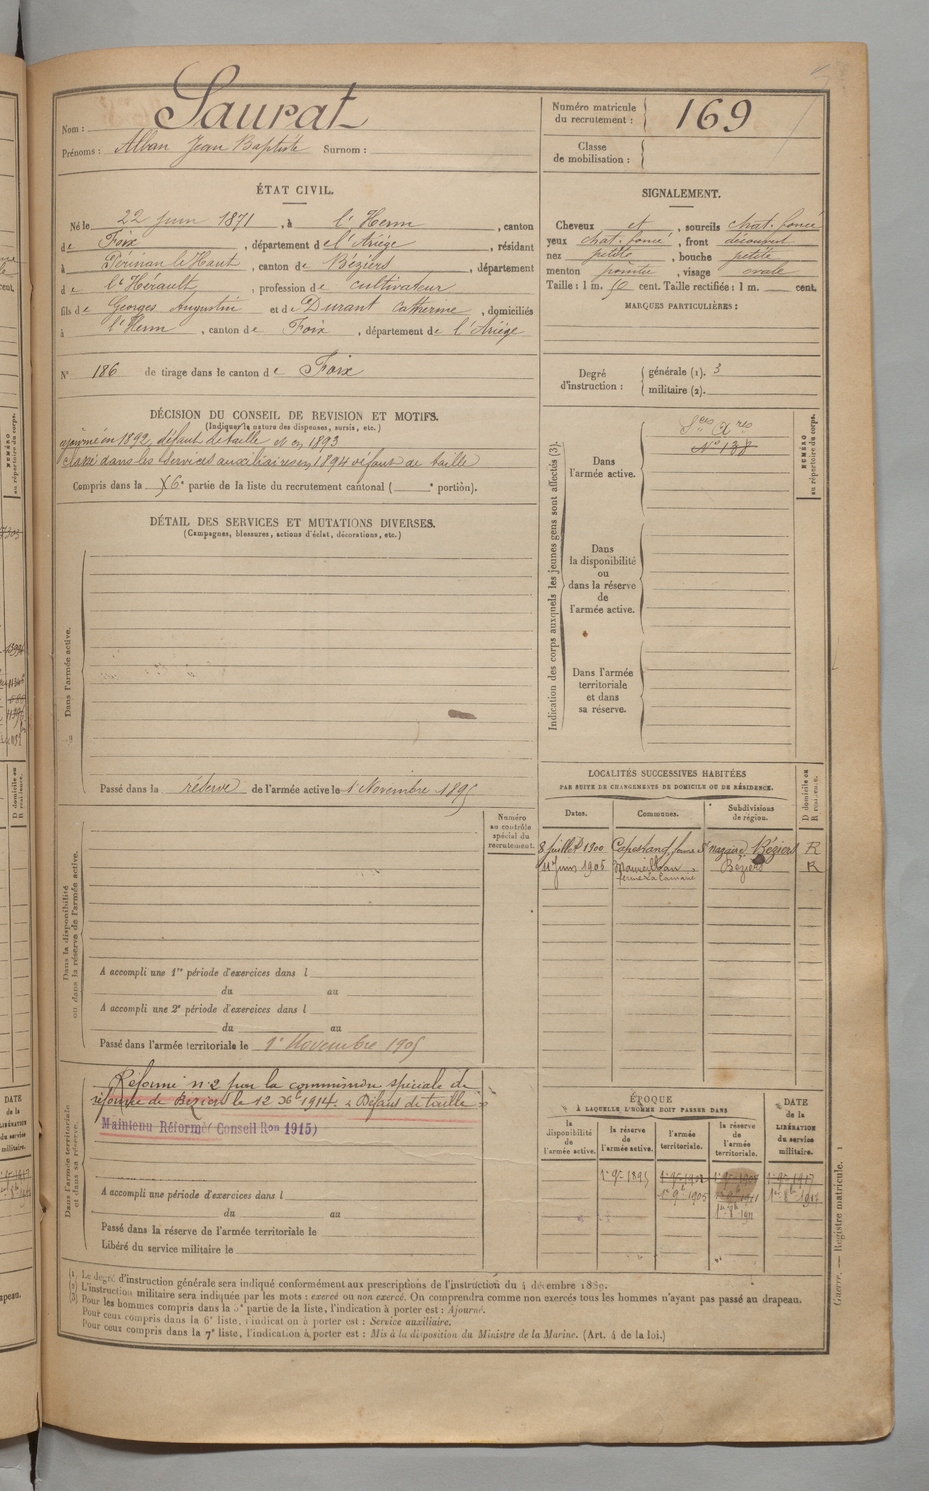 Nom : Saurat
Prénoms : Alban Jean Baptiste Surnom :
Numéro matricule du recrutement : 169
Classe de mobilisation :
ÉTAT CIVIL.
Né le 22 juin 1871, à l'Herm, canton
de Foix, département de l'Ariège, résidant
à Périnan le Haut, canton de Béziers, département
de l'Hérault, profession de cultivateur
fils de Georges Augustin et de Durant Catherine, domiciliés
à l'Herm, canton de Foix, département de l'Ariège
N° 186 de tirage dans le canton de Foix
SIGNALEMENT.
Cheveux et, sourcils chat. foncé
yeux chat. foncé, front découvert
nez petite, bouche petite
menton pointu, visage ovale
Taille : 1 m. 50 cent. Taille rectifiée : 1 m. cent.
MARQUES PARTICULIÈRES :
Degré d'instruction : générale (1). 3
militaire (2).
DÉCISION DU CONSEIL DE REVISION ET MOTIFS.
(Indiquer la nature des dispenses, sursis, etc.)
ajourné en 1892, défaut de taille et en 1893
classé dans les services auxiliaires en 1894 défaut de taille
Compris dans la 6e partie de la liste du recrutement cantonal ( e portion).
DÉTAIL DES SERVICES ET MUTATIONS DIVERSES.
(Campagnes, blessures, actions d'éclat, décorations, etc.)
Dans l'armée active.
Passé dans la réserve de l'armée active le 1er Novembre 1895
Indication des corps auxquels les jeunes gens sont affectés (3).
NUMÉRO au répertoire du corps.
Dans l'armée active.
Sces Xres
N° 138
Dans la disponibilité ou dans la réserve de l'armée active.
Dans l'armée territoriale et dans sa réserve.
LOCALITÉS SUCCESSIVES HABITÉES
PAR SUITE DE CHANGEMENTS DE DOMICILE OU DE RÉSIDENCE.
D domicile ou R résidence.
Dates. Communes. Subdivisions de région.
8 juillet 1900 Capestang ferme St nazaire Béziers R
11 Juin 1905 Maureilhan Béziers R
Numéro au contrôle spécial du recrutement.
Dans la disponibilité ou dans la réserve de l'armée active.
A accompli une 1re période d'exercices dans l
du au
A accompli une 2e période d'exercices dans l
du au
Passé dans l'armée territoriale le 1er Novembre 1905
Dans l'armée territoriale et dans sa réserve.
Réformé n°2 par la commission spéciale de
réforme de Béziers le 12 Xbre 1914. « Défaut de taille »
Maintenu Réformé (Conseil Ron 1915)
A accompli une période d'exercices dans l
du au
Passé dans la réserve de l'armée territoriale le
Libéré du service militaire le
ÉPOQUE
À LAQUELLE L'HOMME DOIT PASSER DANS
DATE de la LIBÉRATION du service militaire.
la disponibilité de l'armée active. la réserve de l'armée active. l'armée territoriale. la réserve de l'armée territoriale.
1er 9bre 1895 1er 9bre 1902 1er 9bre 1917
1er 9bre 1905 1er 9bre 1911 1er 8bre 1917
1er 8bre 1911
(1) Le degré d'instruction générale sera indiqué conformément aux prescriptions de l'instruction du 4 décembre 1889.
(2) L'instruction militaire sera indiquée par les mots : exercé ou non exercé. On comprendra comme non exercés tous les hommes n'ayant pas passé au drapeau.
(3) Pour les hommes compris dans la 5e partie de la liste, l'indication à porter est : Ajourné.
Pour ceux compris dans la 6e liste, l'indication à porter est : Service auxiliaire.
Pour ceux compris dans la 7e liste, l'indication à porter est : Mis à la disposition du Ministre de la Marine. (Art. 4 de la loi.)
Guerre. — Registre matricule.